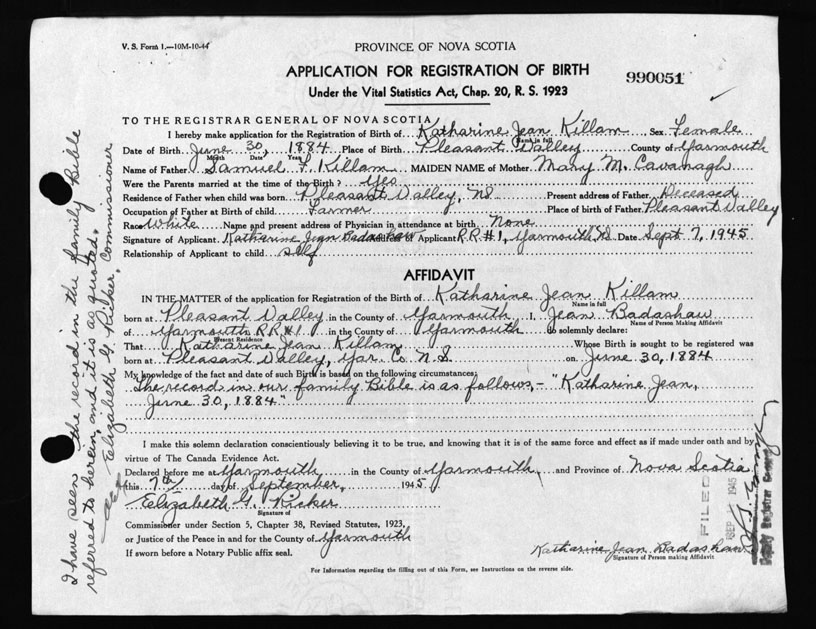 V. S. Form 1.—10M-10-44
PROVINCE OF NOVA SCOTIA
APPLICATION FOR REGISTRATION OF BIRTH
990051
Under the Vital Statistics Act, Chap. 20, R. S. 1923
TO THE REGISTRAR GENERAL OF NOVA SCOTIA
I hereby make application for the Registration of Birth of Katharine Jean Killam Sex Female
Name in full
Date of Birth June 30, 1884 Place of Birth Pleasant Valley County of Yarmouth
Month Date Year
Name of Father Samuel Killam MAIDEN NAME of Mother Mary M. Cavanagh
Were the Parents married at the time of the Birth? Yes
Residence of Father when child was born Pleasant Valley, NS Present address of Father Deceased
Occupation of Father at Birth of child Farmer Place of birth of Father Pleasant Valley
Race White Name and present address of Physician in attendance at birth None
Signature of Applicant Katharine Jean Badashaw Address of Applicant R.R #1, Yarmouth, NS Date Sept 7, 1945
Relationship of Applicant to child self
AFFIDAVIT
IN THE MATTER of the application for Registration of the Birth of Katharine Jean Killam
Name in full
born at Pleasant Valley in the County of Yarmouth I, Jean Badashaw
Name of Person Making Affidavit
of Yarmouth R.R #1 in the County of Yarmouth do solemnly declare:
Present Residence
That Katharine Jean Killam Whose Birth is sought to be registered was
born at Pleasant Valley, Yar. Co. N.S. on June 30, 1884
My knowledge of the fact and date of such Birth is based on the following circumstances:
The record in our family Bible is as follows,- "Katharine Jean,
June 30, 1884"
I make this solemn declaration conscientiously believing it to be true, and knowing that it is of the same force and effect as if made under oath and by
virtue of The Canada Evidence Act.
Declared before me at Yarmouth in the County of Yarmouth, and Province of Nova Scotia
this 7th day of September, 1945
Elizabeth G. Ricker
Signature of
Commissioner under Section 5, Chapter 38, Revised Statutes, 1923,
or Justice of the Peace in and for the County of Yarmouth
If sworn before a Notary Public affix seal.
Katharine Jean Badashaw
Signature of Person making Affidavit
For Information regarding the filling out of this Form, see Instructions on the reverse side.
I have seen the record in the family Bible
referred to herein, and it is as quoted.
Elizabeth G. Ricker, Commissioner
FILED
SEP 1945
Deputy Registrar General